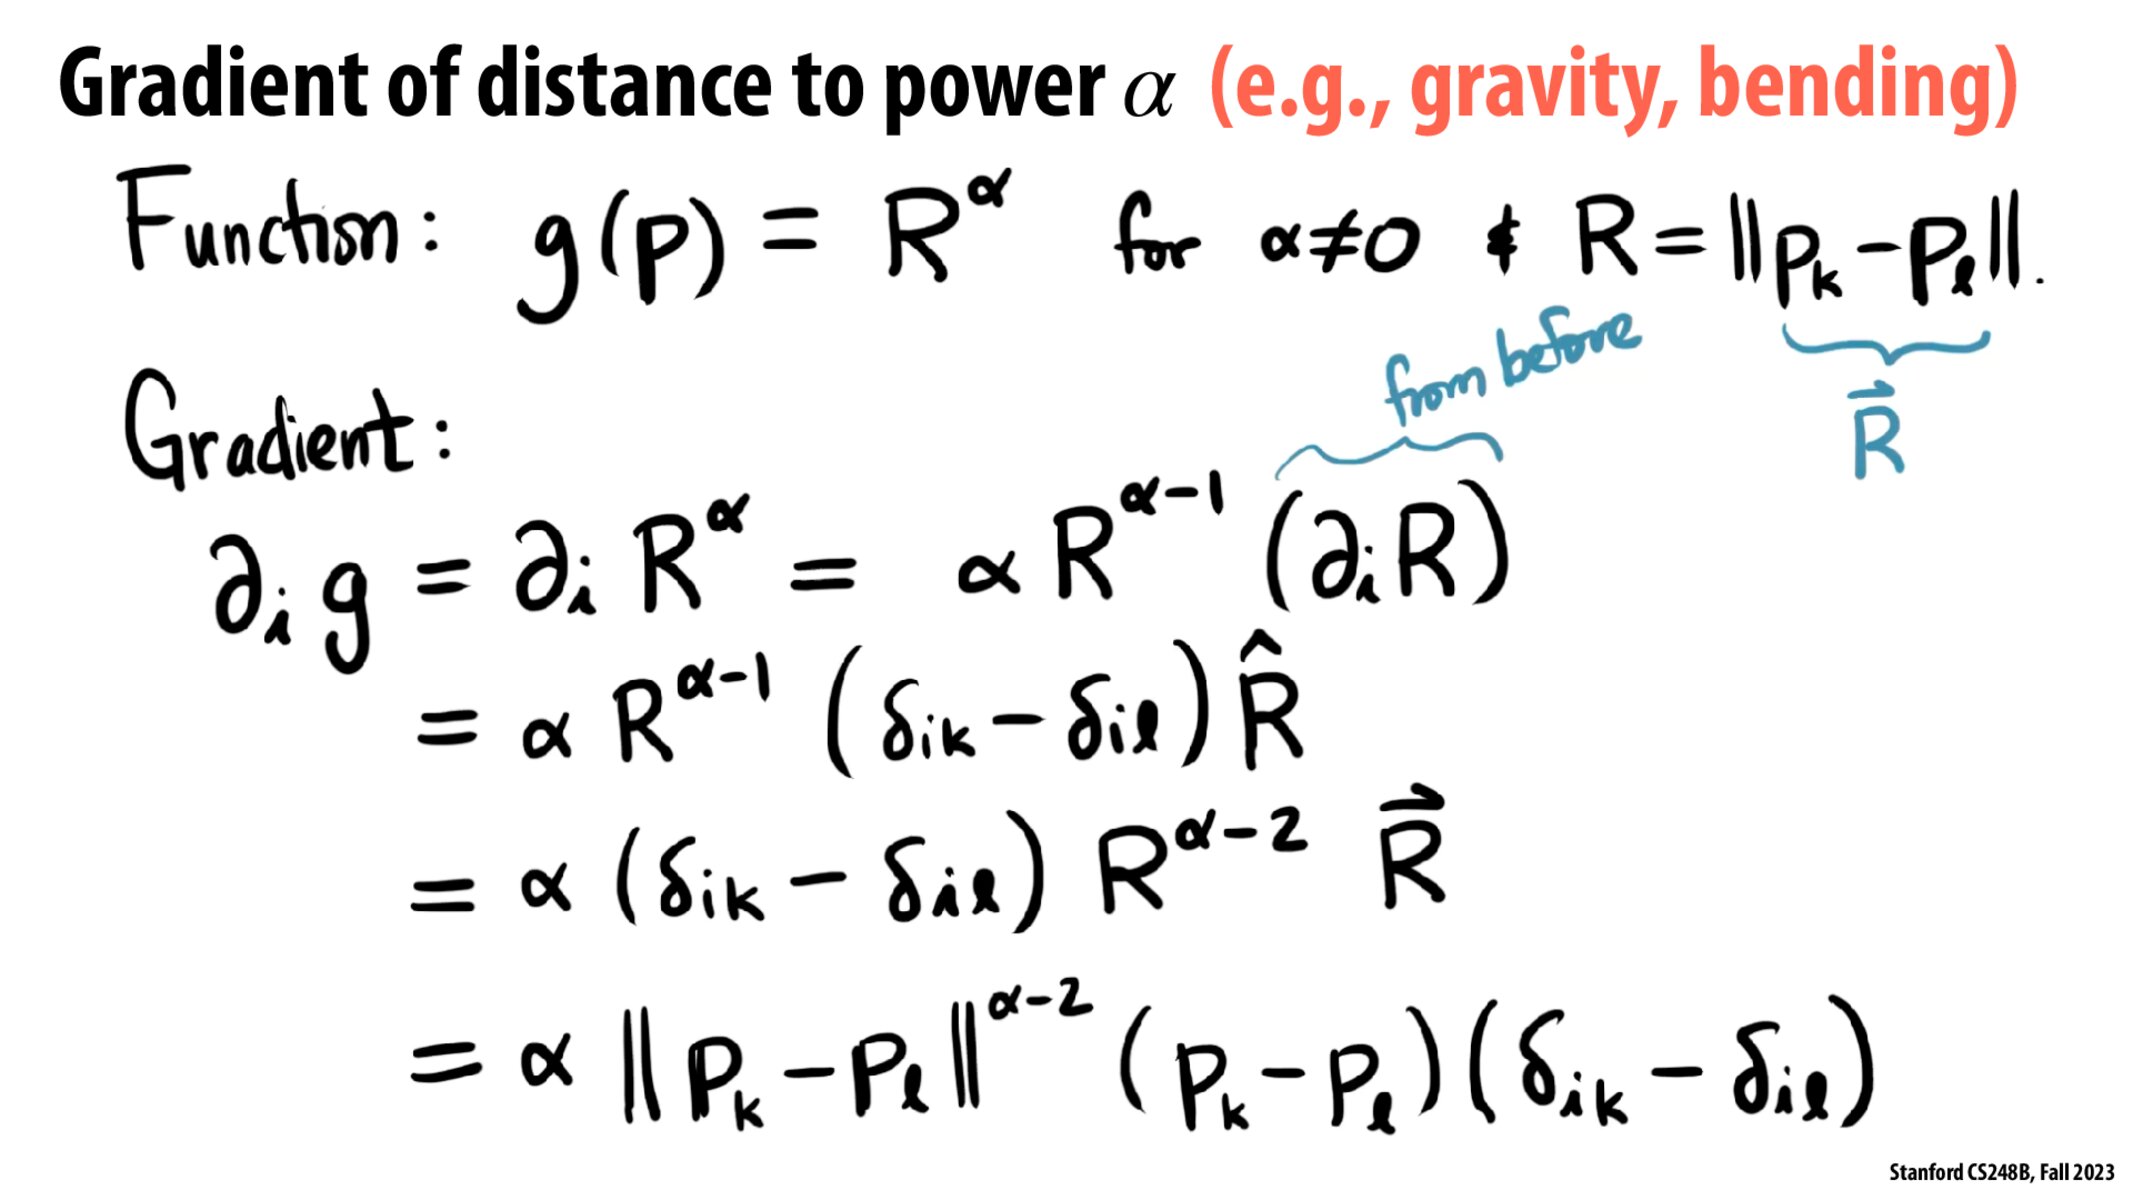 Gradient of distance to power α (e.g., gravity, bending)
Function: g(p) = R^α for α≠0 & R = ||p_k − p_l||.
from before
R⃗
Gradient:
∂_i g = ∂_i R^α = α R^(α−1) (∂_i R)
= α R^(α−1) (δ_ik − δ_il) R̂
= α (δ_ik − δ_il) R^(α−2) R⃗
= α ||p_k − p_l||^(α−2) (p_k − p_l)(δ_ik − δ_il)
Stanford CS248B, Fall 2023